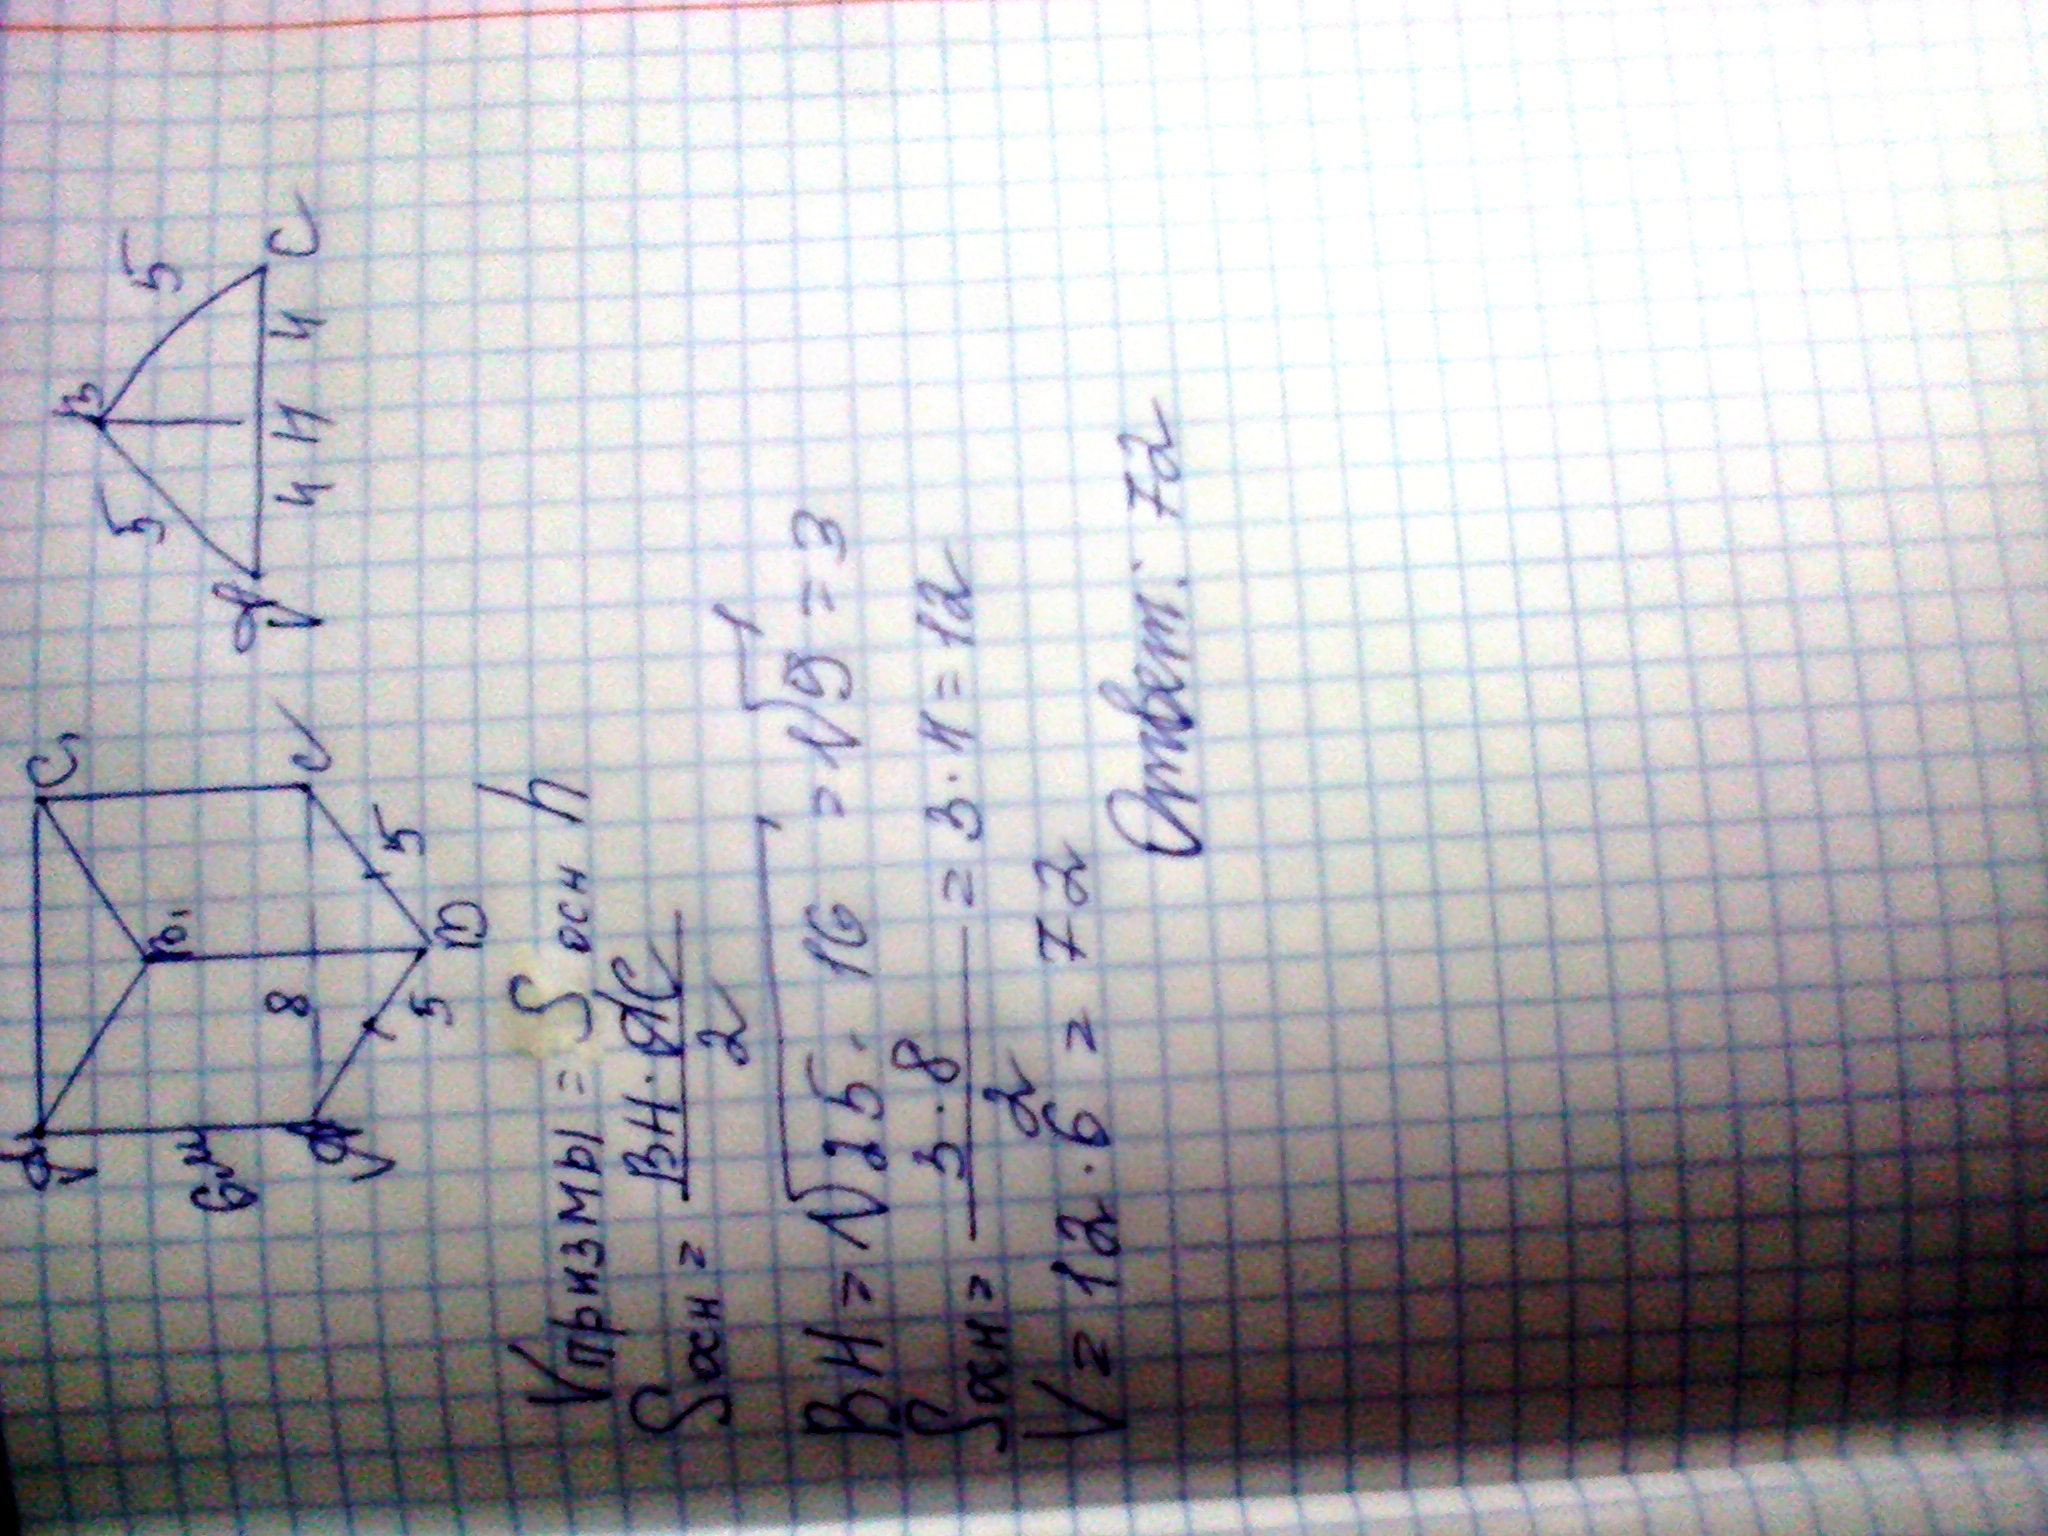 A₁ C₁ B₁
6 м 8
A C
5 5
B
B
5 5
A 4 H 4 C
Vпризмы = S осн h
Sосн = BH · AC / 2
BH = √25 - 16 = √9 = 3
Sосн = 3 · 8 / 2 = 3 · 4 = 12
V = 12 · 6 = 72
Ответ: 72